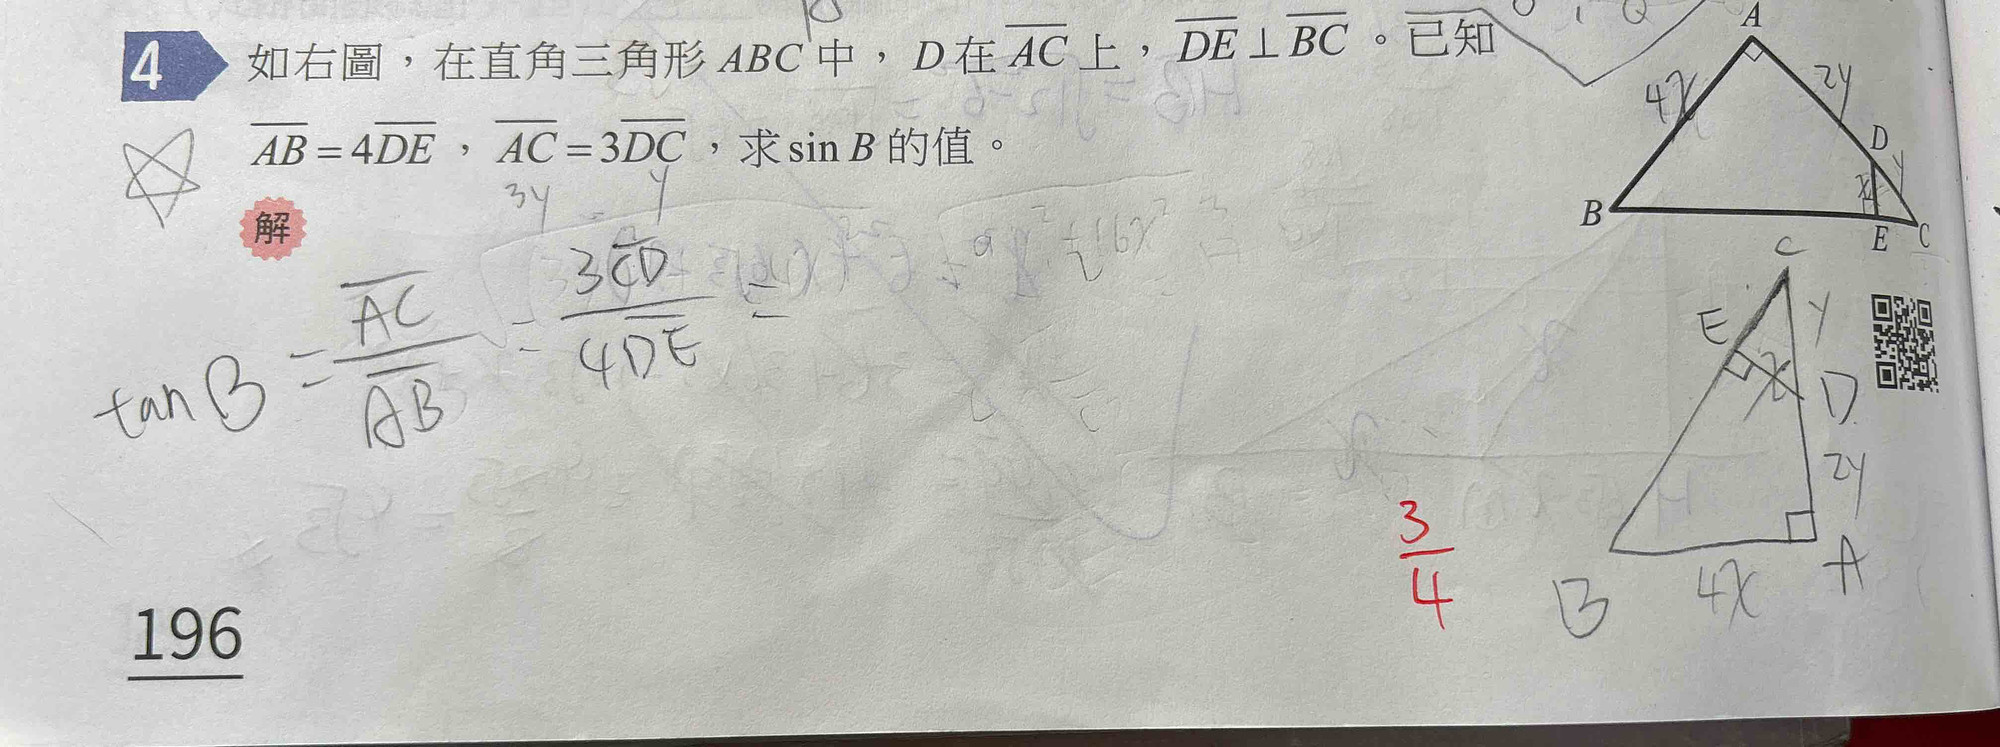 4 如右圖，在直角三角形 ABC 中，D 在 AC 上，DE⊥BC。已知
AB=4DE，AC=3DC，求 sin B 的值。
3y y
解
tan B = AC/AB = 3CD/4DE =
3/4
A
4x
2y
D
y
x
B
E
C
C
E
y
x
D
2y
B
4x
A
196